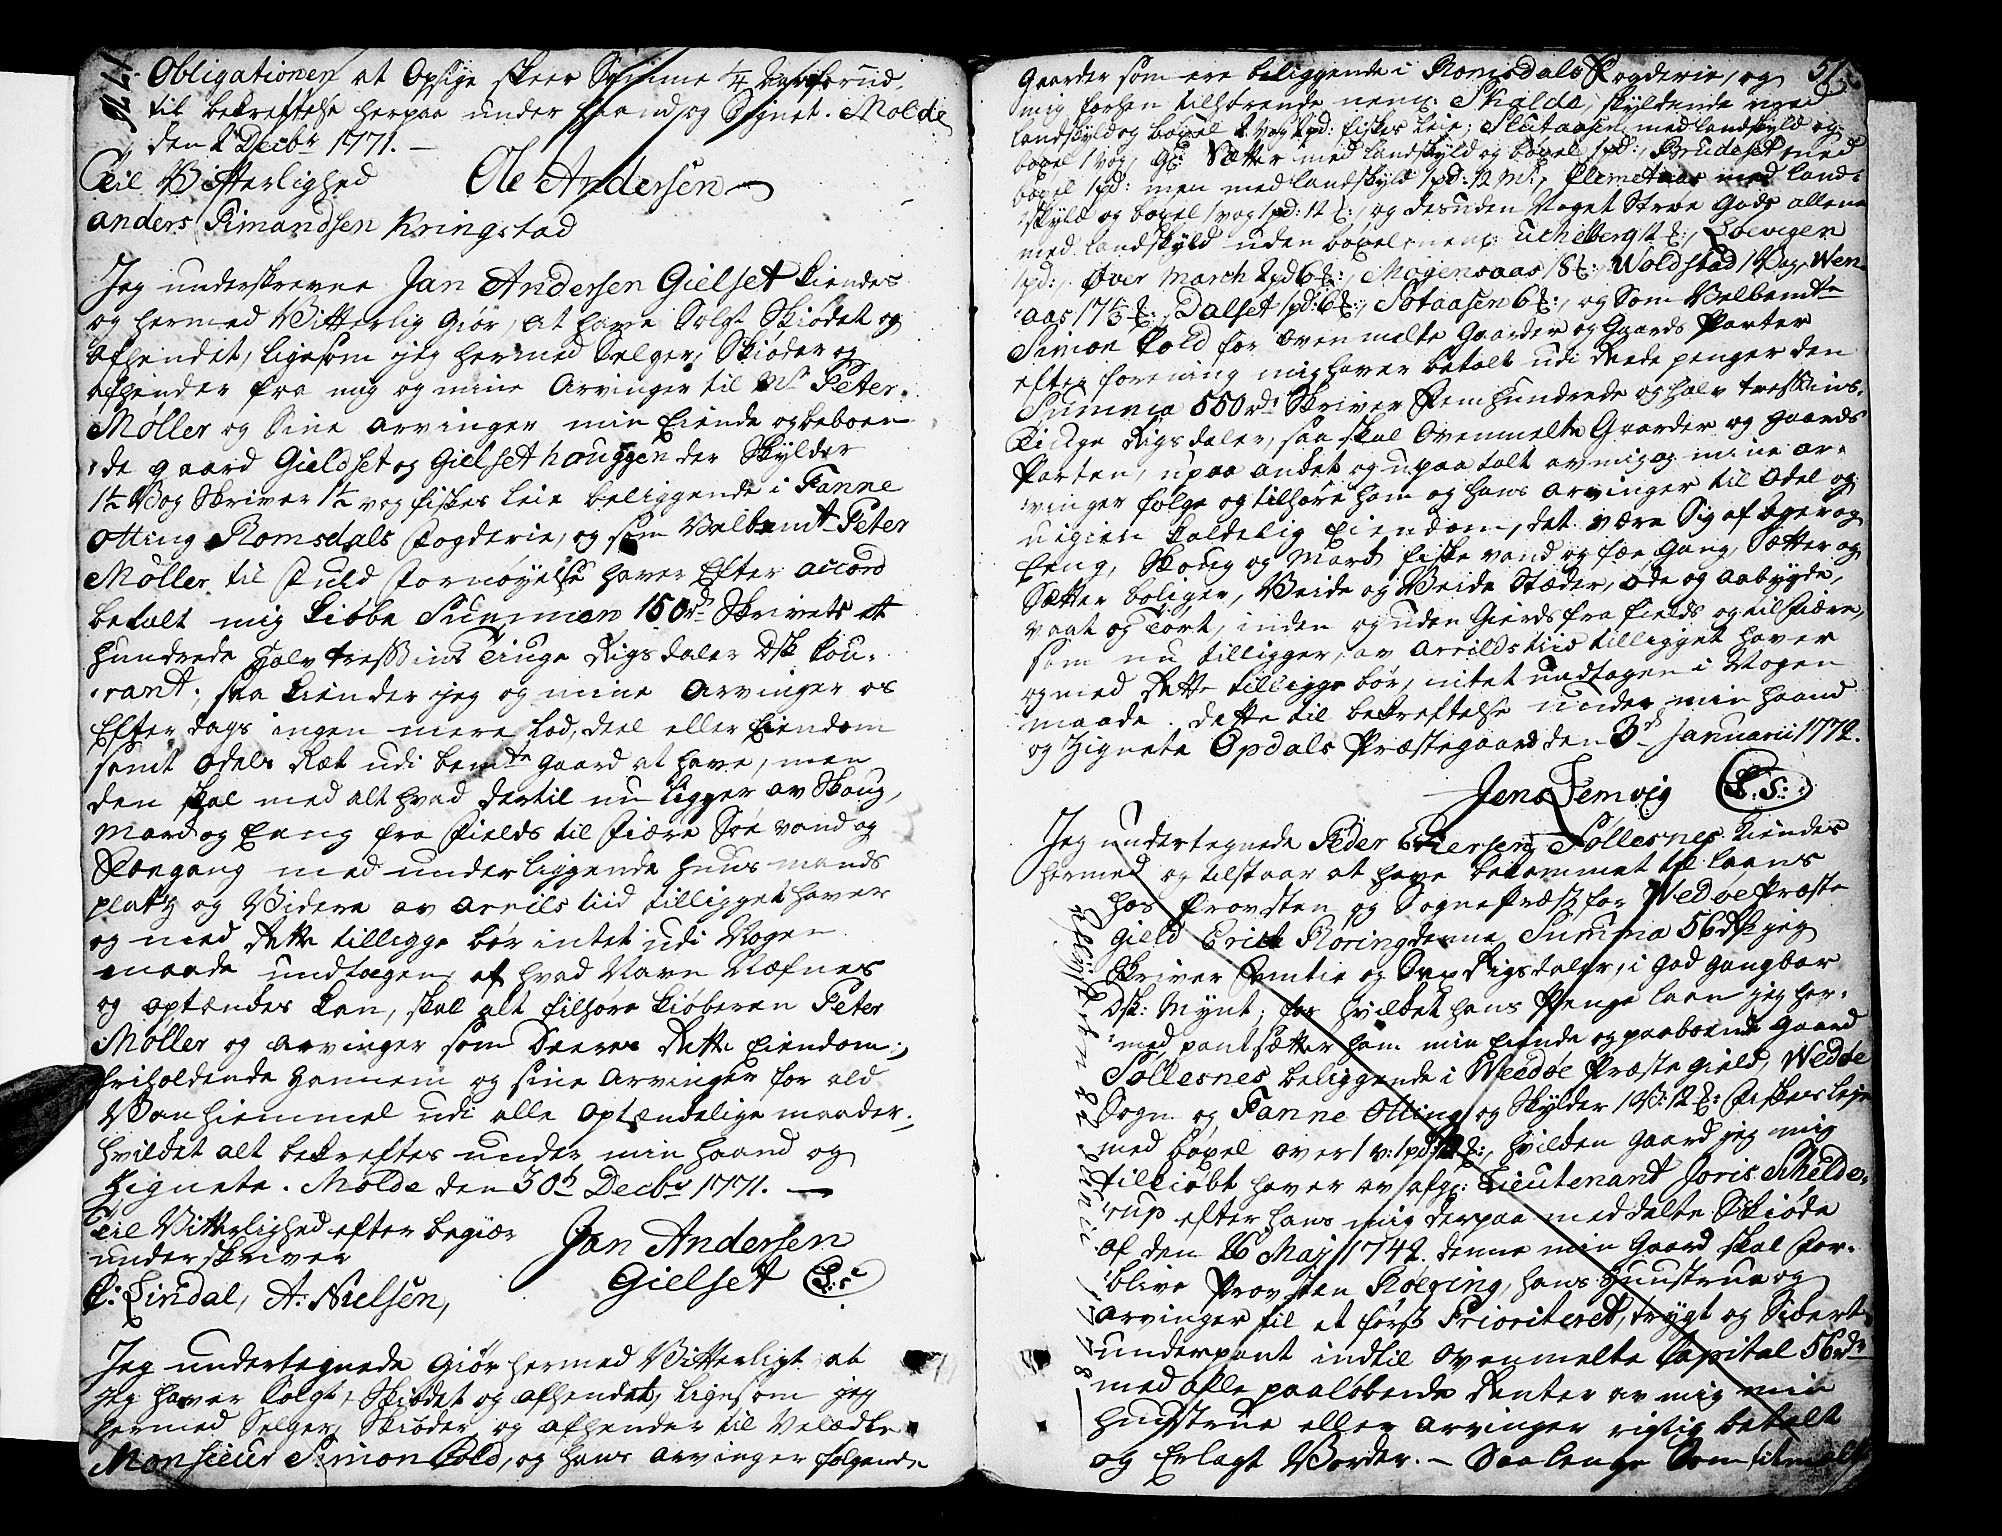 1771.
Obligationen at Opsige skeer Samme 1/4 Aar forud,
til bekreftelse herpaa under Haand og Signet. Molde
den 2 Decbr 1771. —
Til Vitterlighed Ole Andersen
anders Simandsen Kringstad
Jeg underskrevne Jan Andersen Gielset kiendes
og hermed Vitterlig Giør, at have Solgt Skiødet og
afhendet, ligesom jeg hermed Selger, Skiøder og
afhender fra mig og mine Arvinger til Mr Peter
Møller og Sine arvinger min Eiende og beboen-
de gaard Gieldset og Gielset houggen der Skylder
1½ Vog Skriver 1½ vog fiskes leie beliggende i Fanne
Otting Romsdals Fogderie, og som Velbemte Peter
Møller til Fuld Fornøyelse haver Efter accord
betalt mig kiøbe Summen 150rd Skrivets et
hundrede halv tressins tiuge Rigsdaler Dsk Kou-
rant; saa kiender jeg og mine Arvinger os
Efter dags ingen mere Lod, deel eller Eiendom
samt Odels Ræt udi bemte gaard at have, men
den skal med alt hvad dertil nu ligger av Skoug,
Mard og Eeng fra Fields til Fiære Søe vand og
Fægang med underliggende huus mands
platz og Videre av arrils tiid tilligget haver
og med Rette tilligge bør intet udi Nogen
maade undtagen af hvad Navn Næfnes
og optændes kan, skal alt tilhøre kiøberen Peter
Møller og arvinger som Deeres Rette Eiendom;
friholdende hannem og sine Arvinger for ald
Vanhiemmel udi alle Optændelige maader;
hvilket alt bekreftes under min haand og
Zignete. Molde den 30t Decbr 1771. —
Til Vitterlighed efter begiær Jan Andersen
underskriver Gielset (L:S:)
P: Lindal, A: Nielsen,
Jeg undertegnede Giør hermed Vitterligt at
jeg haver Solgt, Skiødet og afhendet, ligesom jeg
hermed Selger, Skiøder og afhender til Velædle
Monsieur Simon Cold, og hans arvinger følgende
51.
Gaarder som ere beliggende i Romsdals Fogderie, og
mig forhen tilhørende neml: Skalde, skyldende med
landskyld og boxel 2 vog 2pd: fiskes leie; Slutaasen med landskyld og
boxel 1 vog, Sætter med landskyld og boxel 1pd:, Brudeset med
boxel 1pd: men med landskyld 1pd: 12 Mk, Flemetaas med land-
skyld og boxel 1vog 1pd: 12 ℔:, og desuden Noget Strøe Gods allene
med landskyld uden boxel neml: Uchelberg 12 ℔:, Loevigen
1pd:, Over March 2pd 6℔:, Mogensaas 18℔:, Woldstad 1 Vog, Wen-
aas 17⅓ ℔:, Dalset 1pd: 6℔:, Sotaasen 6℔:, og Som Velbemte
Simon Cold for Ovenmelte Gaarder og Gaards Parter
efter forening mig haver betalt udi Rede penger den
Summa 550rd: Skriver Fem hundrede og halv tressins-
tiuge Rigsdaler, saa skal Ovenmelte Gaarder og gaards
Parter, upaa andet og upaa talt av mig og mine ar-
vinger følge og tilhøre ham og hans arvinger til Odel og
uigien kaldelig Eiendom, det være Sig af Ager og
Eeng, Skoug og Mark fiske vand og fæe Gang, Sætter og
Sætter boliger, Veide og Veide Stæder, øde og aabygde,
vaat og tørt, inden og uden Gierds fra fields og til Fiære,
som nu tilligger, av Arrilds tiid tilligget haver
og med Rette tilligge bør, intet undtagen i Nogen
maade. Dette til bekreftelse under min haand
og Zignete Opdals Præstegaard den 3d Januarii 1772.
Jens Lemvig (L:S:)
Jeg undertegnede Peder Sollesnes kiendes
hermed og tilstaar at have bekommet til laans
hos Provsten og Sognepræst for Wedøe Præste
Gield Erich Roring denne Summa 56 dlr jeg
Skriver Femtie og Sex Rigsdaler, i god gangbar
Dsk: Mynt; for hvilket hans Penge laan jeg her-
med pantsætter ham min Eiende og paaboende Gaard
Sollesnes beliggende i Weedøe Præste gield, Wedøe
Sogn og Fanne Otting og Skylder 1 V: 12 ℔: Fiskes leje
med boxel over 1 v: 1pd: 12 ℔:, hvilken Gaard jeg mig
tilkiøbt haver av afg: Lieutenant Joris Schelde-
rup efter hans mig derpaa meddelte Skiøde
af den 26 Maj 1742. denne min Gaard skal For-
blive Provsten Roering, hans Hustrue og
arvinger til et først Prioriteret, trygt og Sikkert
underpant indtil Ovenmelte Capital 56rd
med alle paaløbende Renter av mig min
Hustrue eller arvinger rigtig betalt
og Erlagt Vorder. — Saa lenge Som